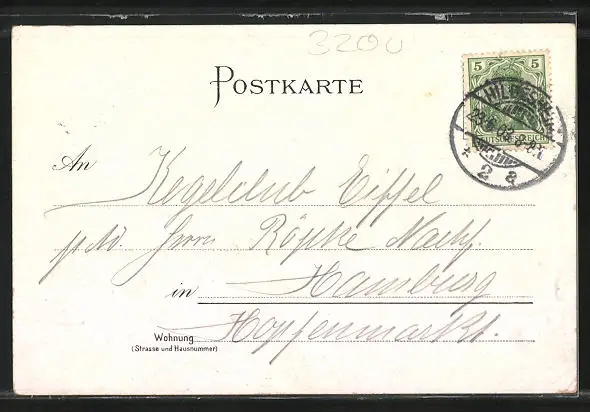 3200
POSTKARTE
5 5
DEUTSCHES REICH
HILDESHEIM
* 2 a
An Kegelclub Eiffel
Herrn Röpke Nachf.
in Hamburg
Wohnung Hopfenmarkt.
(Strasse und Hausnummer)